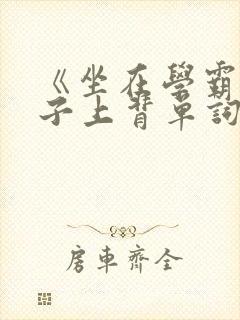 《坐在學霸
子上背單詞
房車齊全